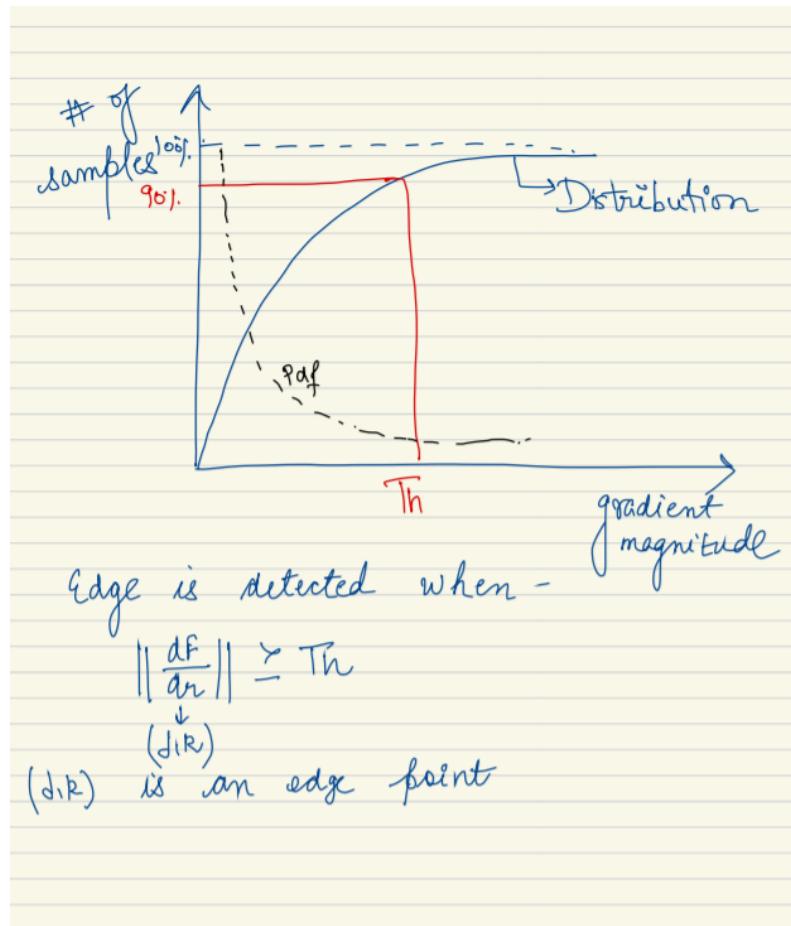 # of
samples
100%
90%
Distribution
Pdf
Th
gradient
magnitude
Edge is detected when -
|| dF/dr || ≥ Th
↓
(j,k)
(j,k) is an edge point